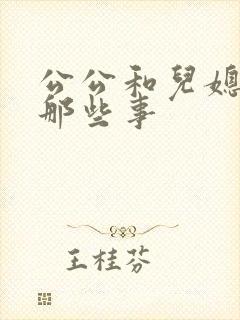 公公和兒媳
那些事
王桂芬